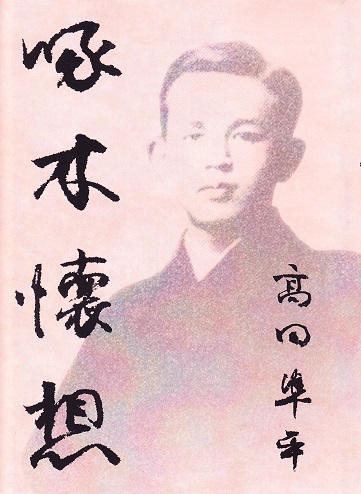 啄木懐想
高田準平